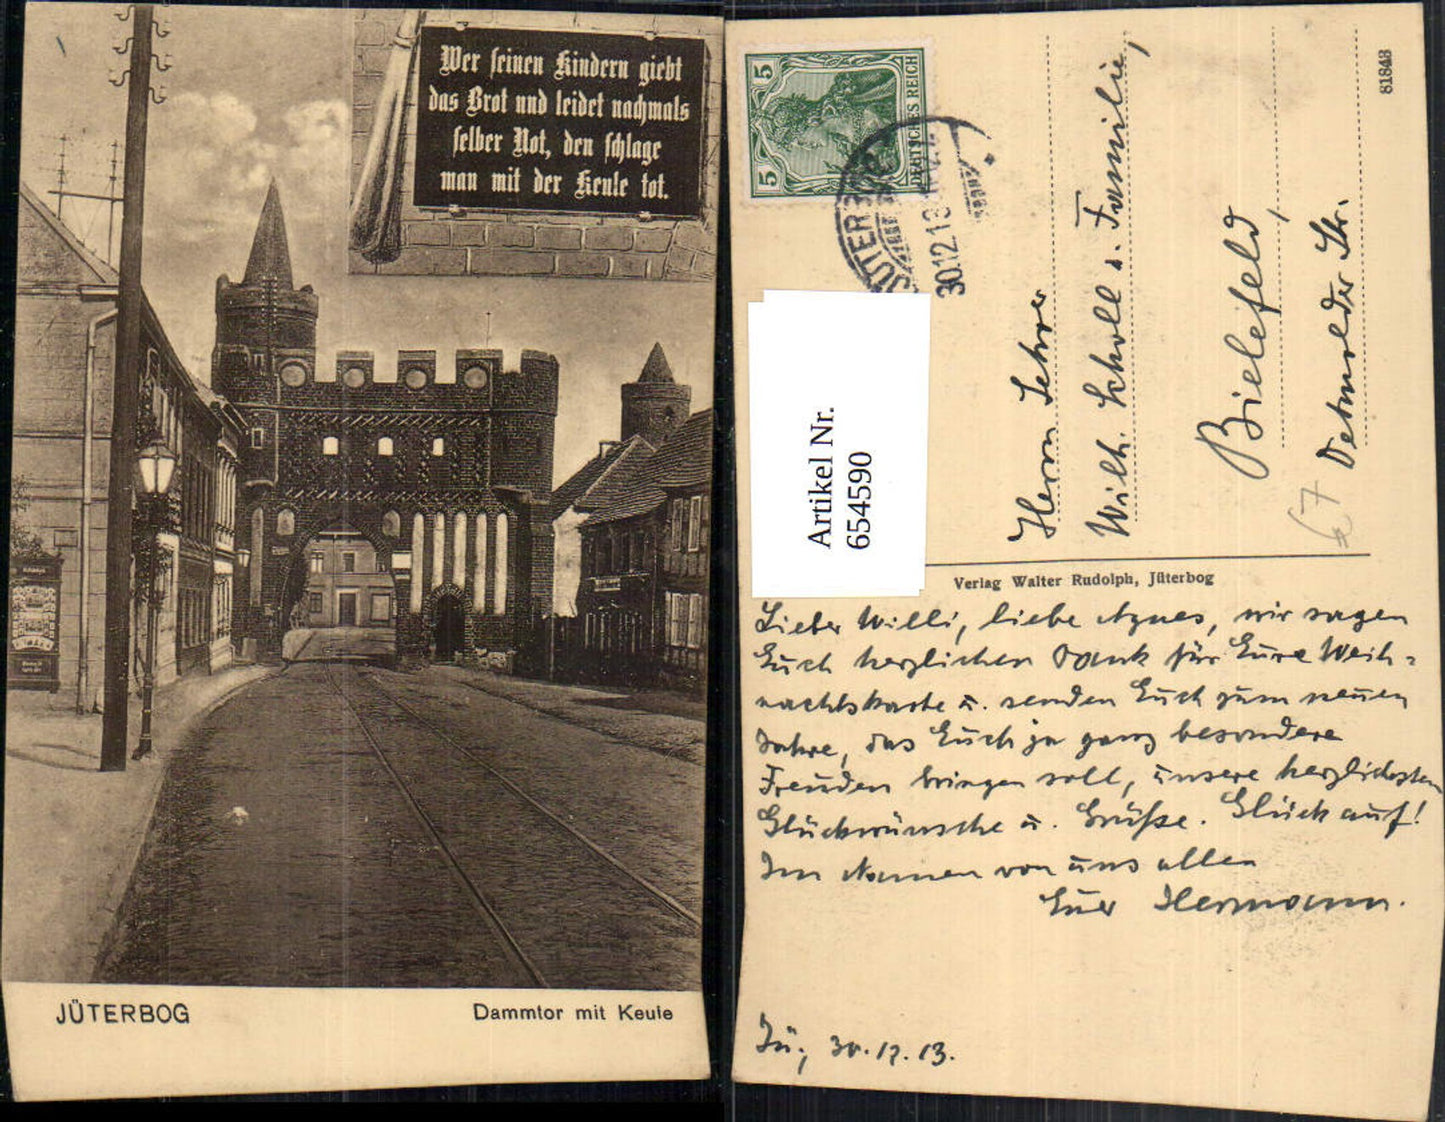 Wer seinen Kindern giebt
das Brot und leidet nachmals
selber Not, den schlage
man mit der Keule tot.
JÜTERBOG
Dammtor mit Keule
5
5
DEUTSCHES REICH
JÜTERBOG
30.12.13
Artikel Nr.
654590
81843
Herrn Lehrer
Wilh. Scholl u. Familie,
Bielefeld,
Detmolder Str.
67
Verlag Walter Rudolph, Jüterbog
Lieber Willi, liebe Agnes, wir sagen
Euch herzlichen Dank für Eure Weih-
nachtskarte u. senden Euch zum neuen
Jahre, das Euch ja ganz besondere
Freuden bringen soll, unsere herzlichsten
Glückwünsche u. Grüße. Glück auf!
Im Namen von uns allen
Euer Hermann.
Jü, 30.12.13.